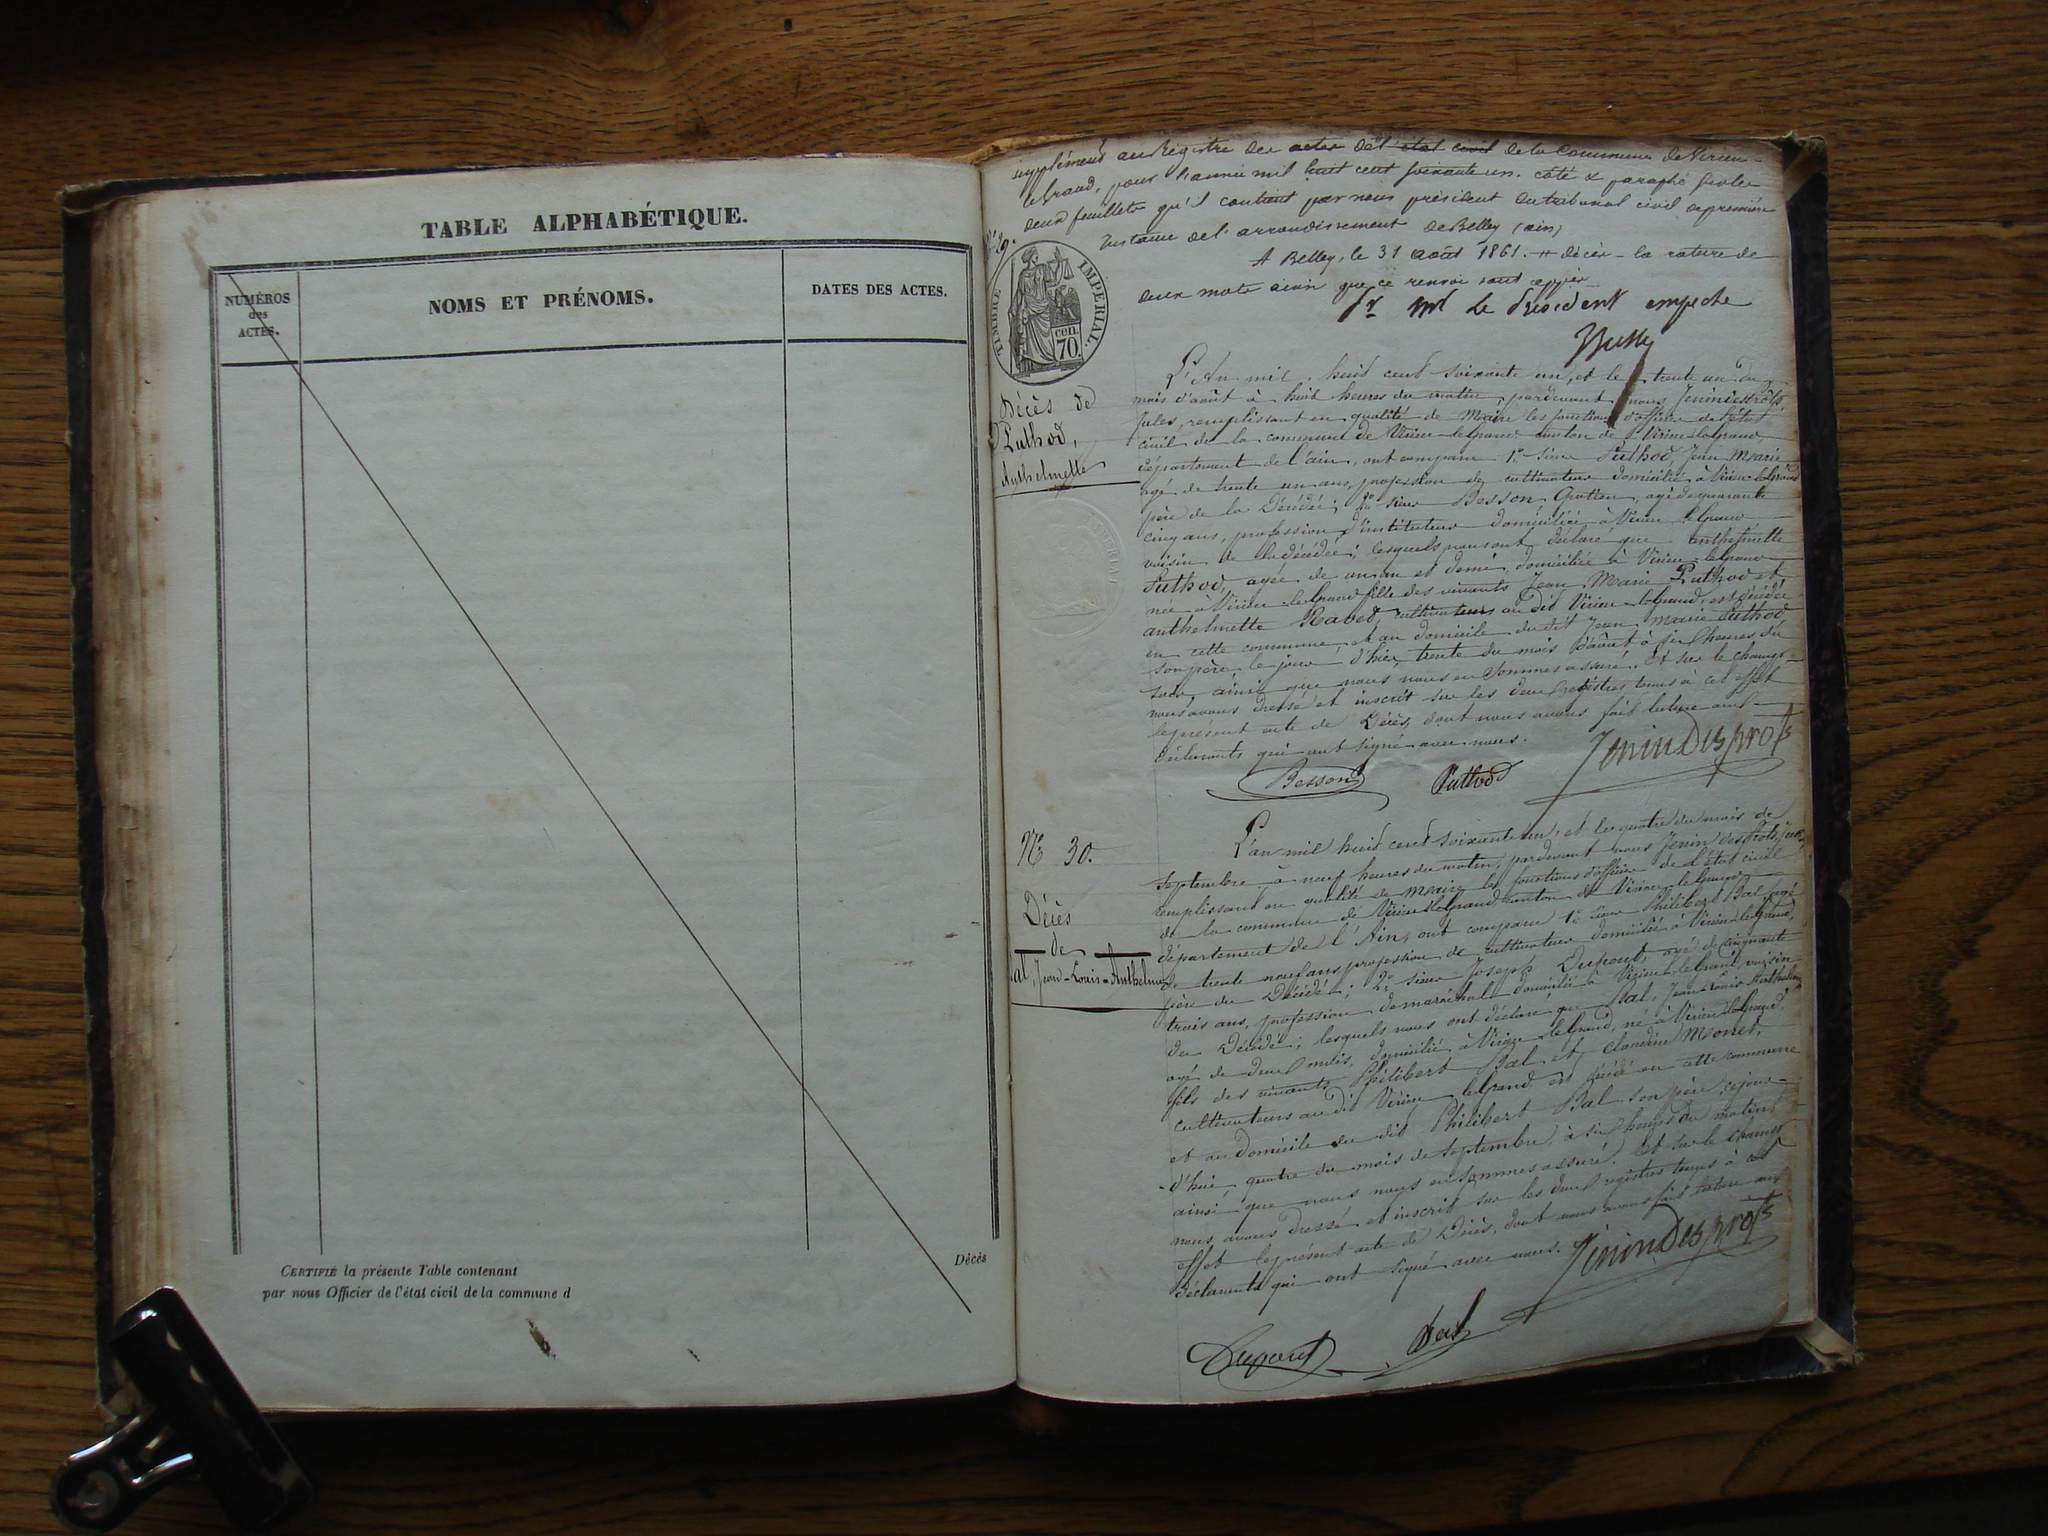 TABLE ALPHABÉTIQUE.
NUMÉROS
des
ACTES.
NOMS ET PRÉNOMS.
DATES DES ACTES.
Décès
CERTIFIÉ la présente Table contenant
par nous Officier de l'état civil de la commune d
supplément au Registre des actes de l'état civil de la Commune de Virieu-
le-Grand, pour l'année mil huit cent soixante un. côté & paraphé sur les
deux feuillets qu'il contient par nous président du tribunal civil de première
Instance de l'arrondissement de Belley (ain)
A Belley, le 31 août 1861. # décès - la rature de
deux mots ainsi que ce renvoi sont
Pr Mr Le Président empêché
N° 29.
TIMBRE IMPÉRIAL.
cen.
70.
Décès de
Puthod,
Anthelmette
L'An mil huit cent soixante un, et le trente un du
mois d'août à huit heures du matin, pardevant nous Jenin desprots
Jules, remplissant en qualité de Maire les fonctions d'officier de l'état
civil de la commune de Virieu-le-Grand canton de Virieu-le-grand
département de l'ain, ont comparu 1° sieur Puthod, Jean Marie
agé de trente un ans, profession de cultivateur domicilié à Virieu-le-Grand
père de la Décédée; 2° sieur Besson Gratien, agé de quarante
cinq ans, profession d'instituteur domicilié à Virieu-le-Grand
voisin de la décédée; lesquels nous ont déclaré que anthelmette
Puthod, agée de un an et demi, domiciliée à Virieu-le-Grand
née à Virieu-le-Grand fille des vivants Jean Marie Puthod et
anthelmette Ravet, cultivateurs au dit Virieu-le-Grand, est décédée
en cette commune, et au domicile du dit Jean Marie Puthod
son père, le jour d'hier, trente du mois d'août à six heures du
soir, ainsi que nous nous en sommes assuré. Et sur le champ
nous avons dressé et inscrit sur les deux registres tenus à cet effet
le présent acte de Décès, dont nous avons fait lecture aux
déclarants qui ont signé avec nous.
JeninDesprots
Besson
Puthod
N° 30.
Décès
de
Bal, Jean-Louis-Anthelme
L'an mil huit cent soixante un, et le quatre du mois de
Septembre à neuf heures du matin, pardevant nous Jenin desprots, Jules
remplissant en qualité de Maire les fonctions d'officier de l'état civil
de la commune de Virieu-le-Grand, canton de Virieu-le-Grand
département de l'Ain, ont comparu 1° sieur Philibert Bal, agé
de trente neuf ans, profession de cultivateur domicilié à Virieu-le-Grand,
père du Décédé; 2° sieur Joseph Dupont, agé de cinquante
trois ans, profession de maréchal domicilié à Virieu-le-Grand voisin
du Décédé; lesquels nous ont déclaré que Bal, Jean Louis Anthelme
agé de deux mois, domicilié à Virieu-le-Grand, né à Virieu-le-Grand,
fils des vivants Philibert Bal et Claudine Monet,
cultivateurs au dit Virieu-le-Grand, est décédé en cette commune
et au domicile du dit Philibert Bal son père, ce jour-
-d'hui quatre du mois de septembre, à six heures du matin
ainsi que nous nous en sommes assuré. Et sur le champ
nous avons dressé et inscrit sur les deux registres tenus à cet
effet le présent acte de Décès, dont nous avons fait lecture aux
Déclarants qui ont signé avec nous.
JeninDesprots
Dupont
Bal